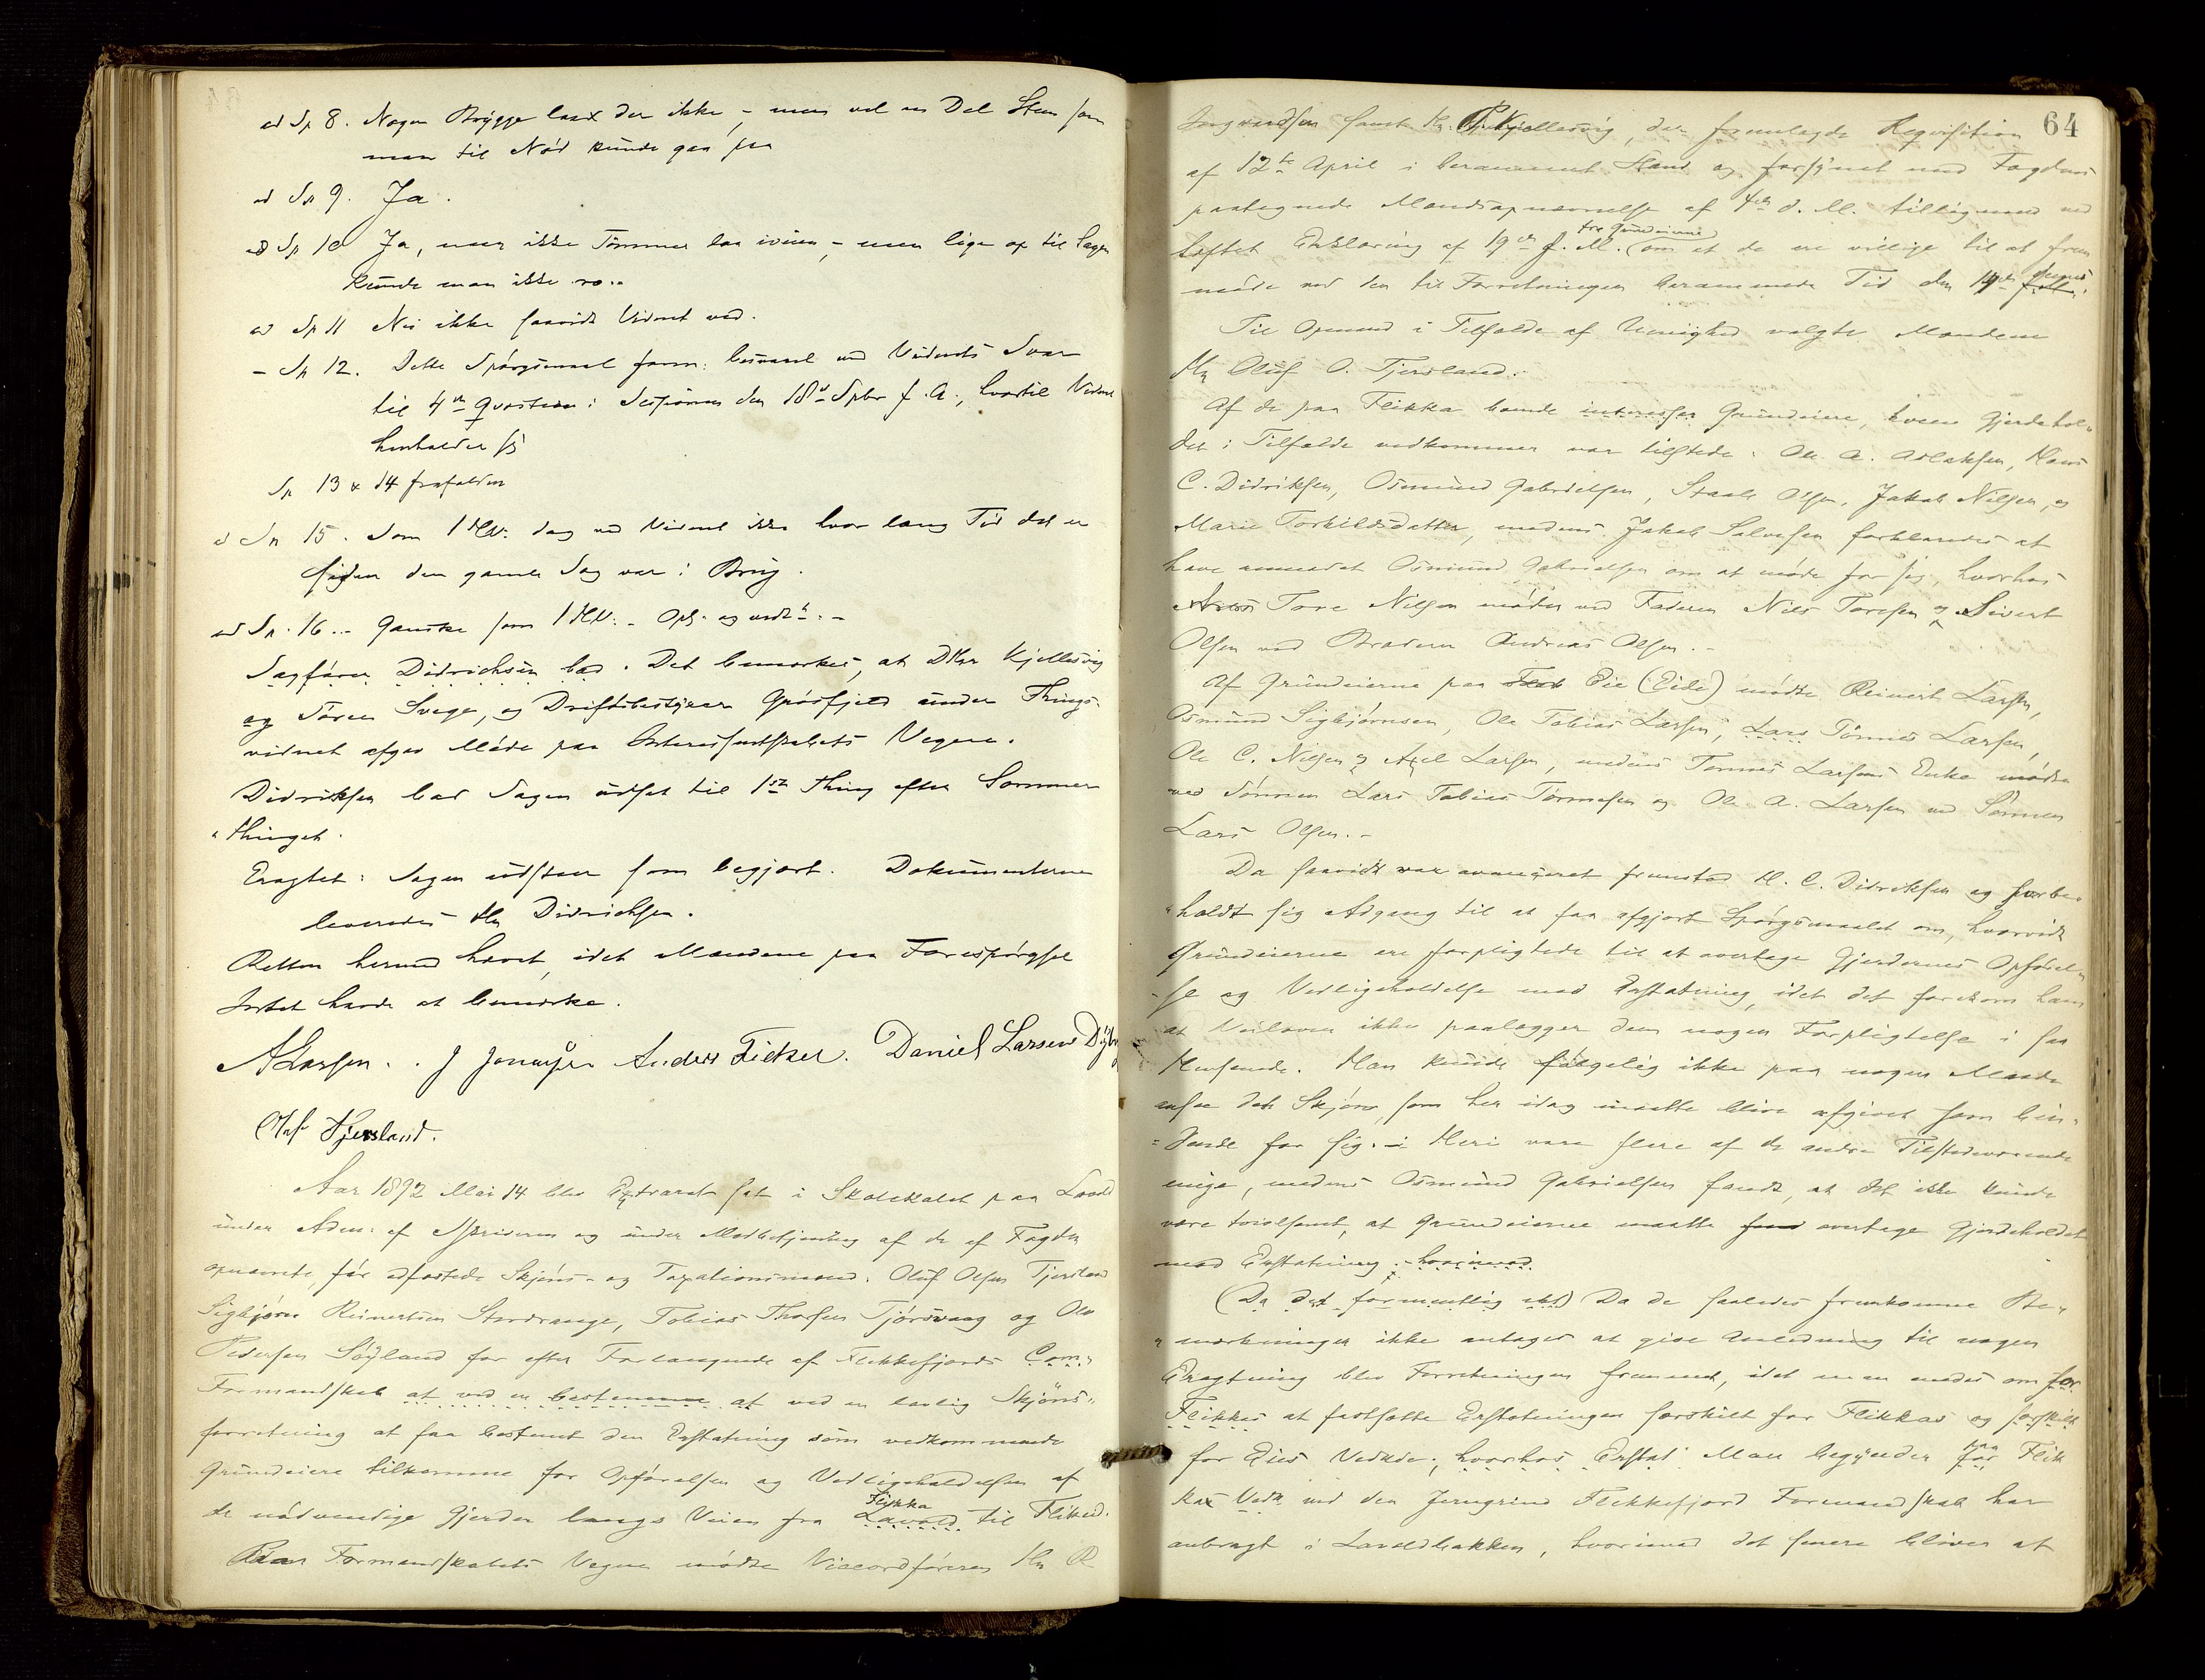 ad Sp 8. Nogen Brygge laa der ikke, – men vel en Del Sten som
man til Nød kunde gaa paa
ad Sp 9. Ja.
ad Sp 10 Ja, naar ikke Tømmer laa iveien, – men lige op til Sagen
kunde man ikke ro..
ad Sp 11 Nei ikke saavidt Vidnet ved.
– Sp 12. Dette Spørgsmaal form: besvaret ved Vidnets Svar
til 4de Qvæstion i Sessionen den 18de Spbr f. A., hvortil Vidnet
henholder sig
Sp 13 & 14 frafaldes
ad Sp 15. Som 1 HV: dog ved Vidnet ikke hvor lang Tid det er
siden den gamle Sag var i Brug.
ad Sp. 16.– Ganske som 1 HV: – Opl. og vedt. –
Sagfører Didrichsen bad. Det bemærkes, at DHrr Kjellesvig
og Søren Svege, og Driftsbestyrer Grøsfjeld under Things-
vidnet afgav Møde paa Interessentskabets Vegne.
Didriksen bad Sagen udsat til 1ste Thing efter Sommer
"thinget.
Eragtet: Sagen udstaar som begjært. Dokumenterne
leveredes Hr Didrichsen.
Retten hermed hævet, idet Mændene paa Forespørgsel
Intet havde at bemærke.
A Larsen. J Jonassen Anders Ficker. Daniel Larsen
Oluf Tjersland.
Aar 1892 Mai 14 blev Extraret sat i Skolelokalet paa
under Adm: af Sskriveren og under Medbetjening af de af Fogden
opnævnte, før edfæstede Skjøns- og Taxationsmænd: Oluf Olsen Tjersland
Sigbjørn Reinertsen Stordrange, Tobias Thorsen Tjørsvaag og Ole
Pedersen Søyland for efter Forlangende af Flekkefjords Com:
Formandskab at ved en bestemme at ved en lovlig Skjøns"
forretning at faa bestemt den Erstatning som vedkommende
Grundeiere tilkomme for Opførelsen og Vedligeholdelsen af
de nødvendige Gjerder langs Veien fra Lavold Flikka til Flikeid.
Paa Formandskabets Vegne mødte Viceordføreren Hr R

64
Ingvaldsen samt Hr. P. Kjellesvig, der fremlagde Reqvisition
af 12te April i berammet Stand og forsynet med Fogdens
paategnede Mandsopnævnelse af 4de d. M. tilligemed ved
hæftet Erklæring af 19de f. M. fra Grundeierne om at de ere villige til at frem
møde ved den til Forretningen berammede Tid den 14de
Til Opmand i Tilfælde af Uenighed valgte Mændene
Hr Oluf O. Tjersland.
Af de paa Flikka boende interesser Grundeiere, hvem Gjerdehol"
det i Tilfælde vedkommer var tilstede: Ole A. Aslaksen, Hans
C. Didriksen, Osmund Gabrielsen, Staale Olsen, Jakob Nilsen, og
Marie Torkildsdatter, medens Jakob Salvesen forklaredes at
have anmodet Osmund Gabrielsen om at møde for sig, hvorhos
Tore Nilsen mødte ved Faderen Nils Toresen og Sivert
Olsen ved Broderen Andreas Olsen. –
Af Grundeierne paa Eie (Eide) mødte Reinert Larsen,
Osmund Sigbjørnsen, Ole Tobias Larsen, Lars Tønnes Larsen,
Ole C. Nilsen og Axel Larsen, medens Tønnes Larsens Enke mødte
ved Sønnen Lars Tobias Tønnesen og Ole A. Larsen ved Sønnen
Lars Olsen. –
Da saavidt var avanceret fremstod H. C. Didriksen og forbe"
"holdt sig Adgang til at faa afgjort Spørgsmaalet om, hvorvidt
Grundeierne ere forpligtede til at overtage Gjerdernes Opførel"
-se og Vedligeholdelse mod Erstatning, idet det forekom ham
at Veiloven ikke paalægger dem nogen Forpligtelse i saa
Henseende. Han kunde følgelig ikke paa nogen Maade
ansee det Skjøn, som her idag maatte blive afgivet som bin-
=dende for sig. i Heri vare flere af de andre Tilstedeværende
enige, medens Osmund Gabrielsen fandt, at det ikke kunde
være tvivlsomt, at Grundeierne maatte overtage Gjerdeholdet
mod Erstatning. hvorimod
(Da det formentlig ikke) Da de saaledes fremkomne Be"
"mærkninger ikke antages at give Anledning til nogen
Eragtning blev Forretningen fremmet, idet man enedes om for
Flikkas at fastsætte Erstatningen særskilt for Flikkas og særskilt
for Eies Vedkde., hvorhos Erstat Man begynder for paa Flik
kas Vedk ved den Jerngrind Flekkefjord Formandskab har
anbragt i Lavoldbakken, hvorimod det senere bliver at